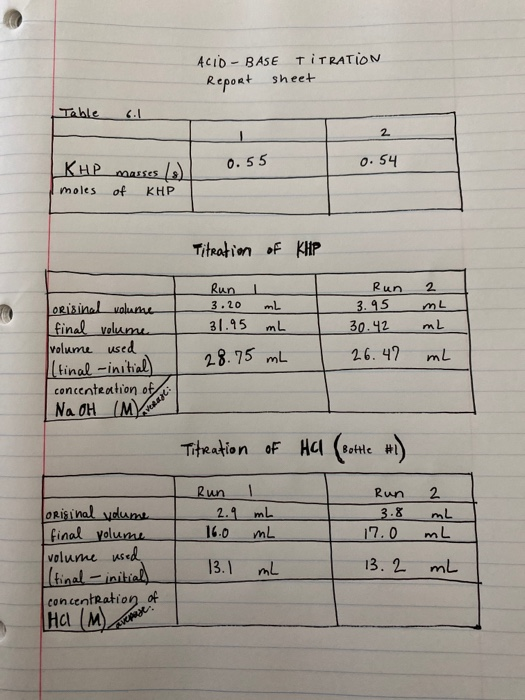 ACID - BASE TITRATION
Report sheet
Table 6.1
1 2
KHP masses (g) 0.55 0.54
moles of KHP
Titration of KHP
Run 1 Run 2
original volume 3.20 mL 3.95 mL
final volume 31.95 mL 30.42 mL
volume used
(final - initial) 28.75 mL 26.47 mL
concentration of
NaOH (M) average:
Titration of HCl (Bottle #1)
Run 1 Run 2
original volume 2.9 mL 3.8 mL
final volume 16.0 mL 17.0 mL
volume used
(final - initial) 13.1 mL 13.2 mL
concentration of
HCl (M) average: